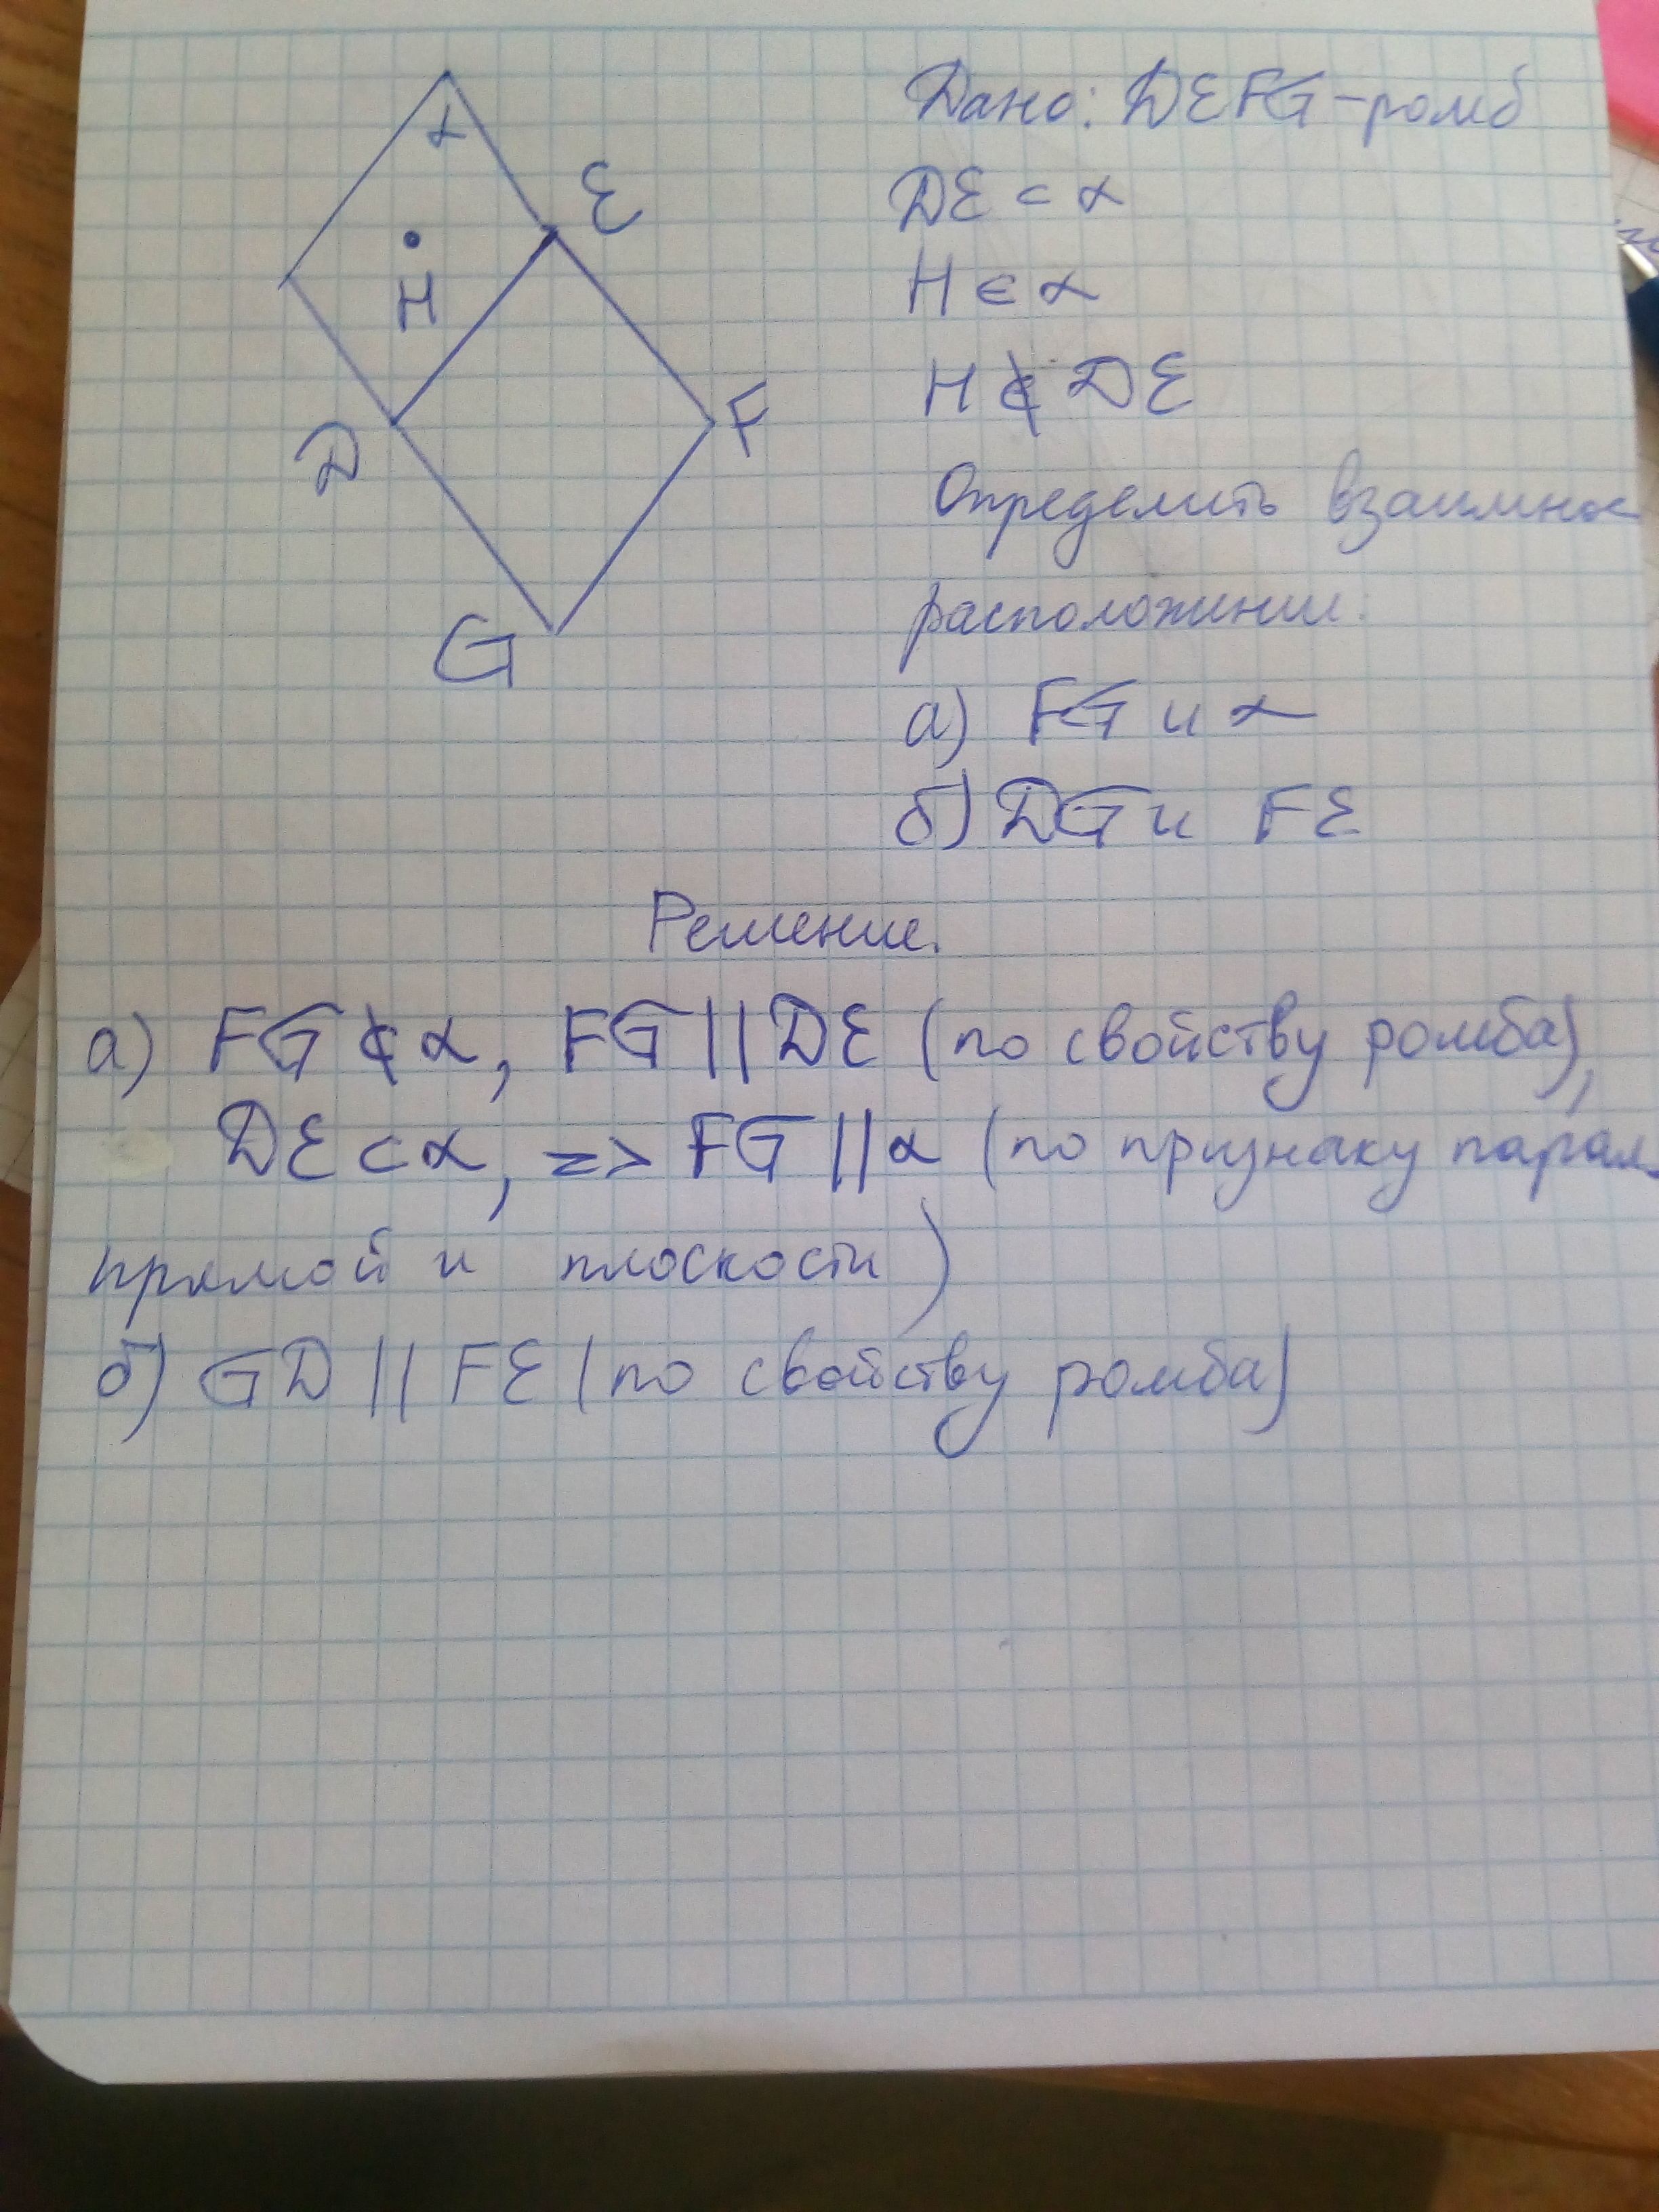 α
E
H
F
D
G
Дано: DEFG-ромб
DE ⊂ α
H ∈ α
H ∉ DE
Определить взаимное
расположение:
а) FG и α
б) DG и FE
Решение.
а) FG ⊄ α, FG || DE (по свойству ромба),
DE ⊂ α, => FG || α (по признаку парал.
прямой и плоскости)
б) GD || FE (по свойству ромба)